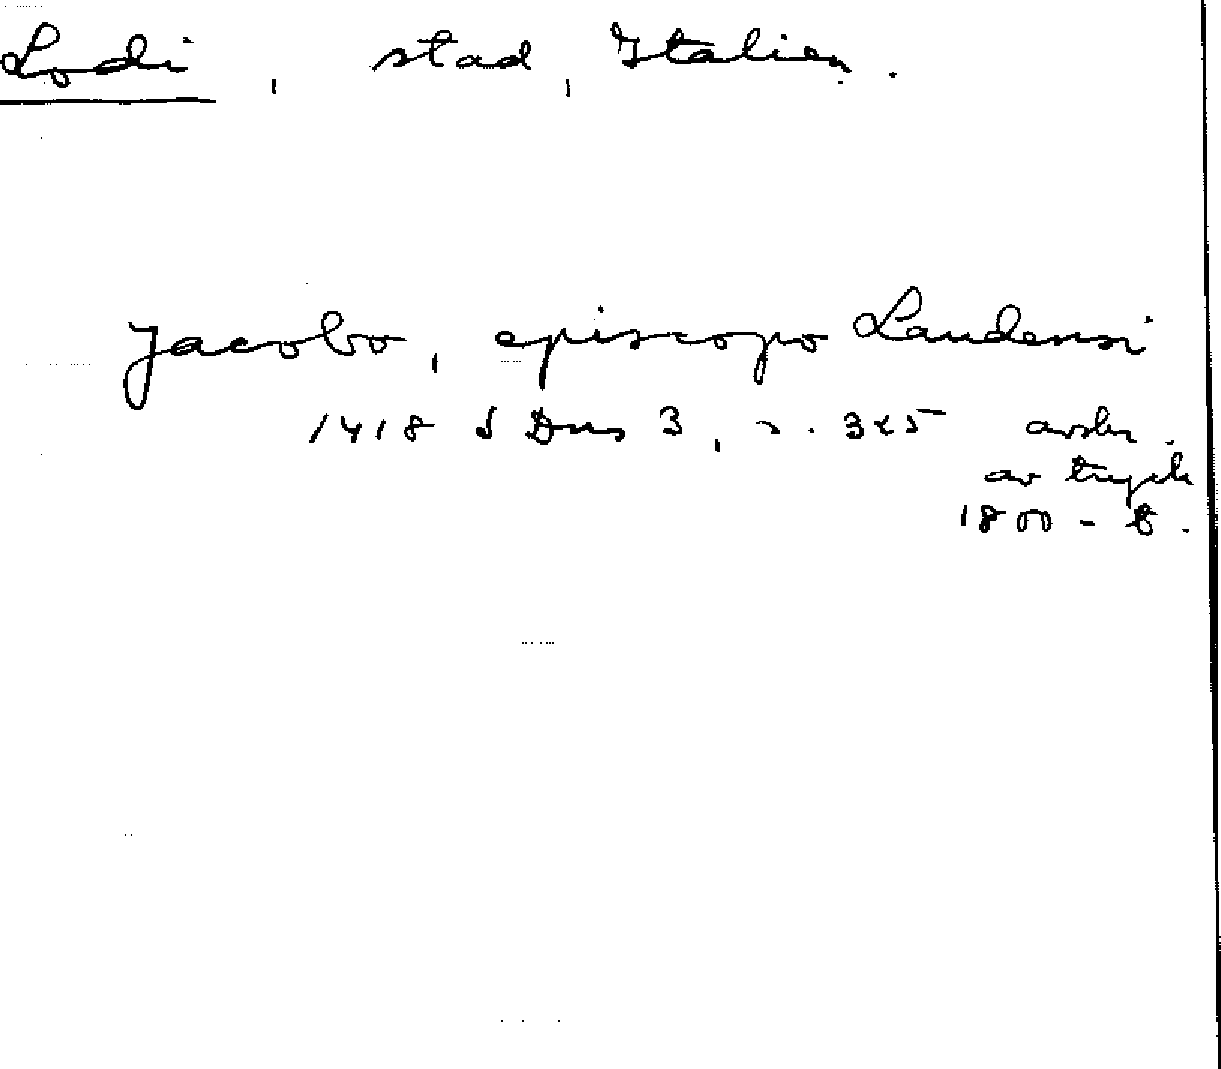 Lodi, stad, Italien.
Jacobo, episcopo Laudensi
1418 Dns 3, s. 325 avskr.
av tryck
1800-t.